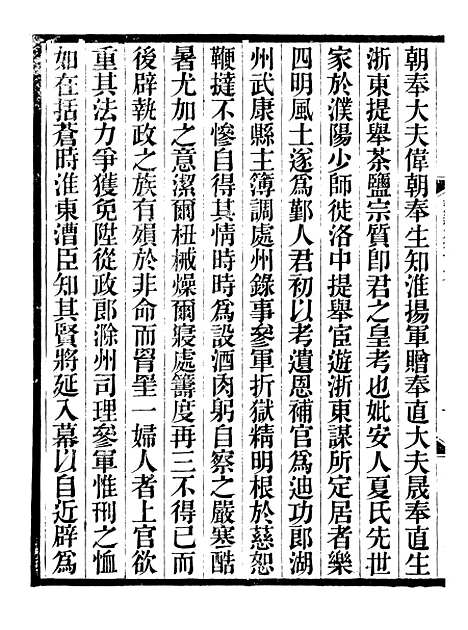 朝奉大夫偉朝奉生知淮揚軍贈奉直大夫晟奉直生
浙東提舉茶鹽宗質卽君之皇考也妣安人夏氏先世
家於濮陽少師徙洛中提舉宦遊浙東謀所定居者樂
四明風土遂爲鄞人君初以考遺恩補官爲迪功郎湖
州武康縣主簿調處州錄事參軍折獄精明根於慈恕
鞭撻不慘自得其情時時爲設酒肉躬自察之嚴寒酷
暑尤加之意潔爾杻械燥爾寢處籌度再三不得已而
後辟執政之族有殞於非命而胥辠一婦人者上官欲
重其法力爭獲免陞從政郎滁州司理參軍惟刑之恤
如在括蒼時淮東漕臣知其賢將延入幕以自近辟爲